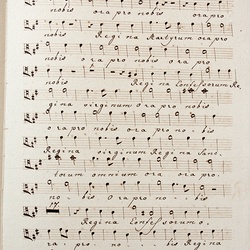 nobis ora pro nobis ora pro
nobis Regina Martyrum ora pro
nobis ora pro nobis ora pro
nobis Regina Confessorum Re,
gina virginum Ora pro nobis
ora pro nobis ora pro no - bis
Regina virginum Regina Sanc,
torum omnium ora pro.
no - bis Ora pro no - bis
17.
Regina Confessorum o,
ra - pro - no - bis Regina